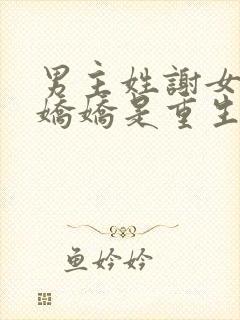 男主姓謝女
嬌嬌是重生
鱼妗妗